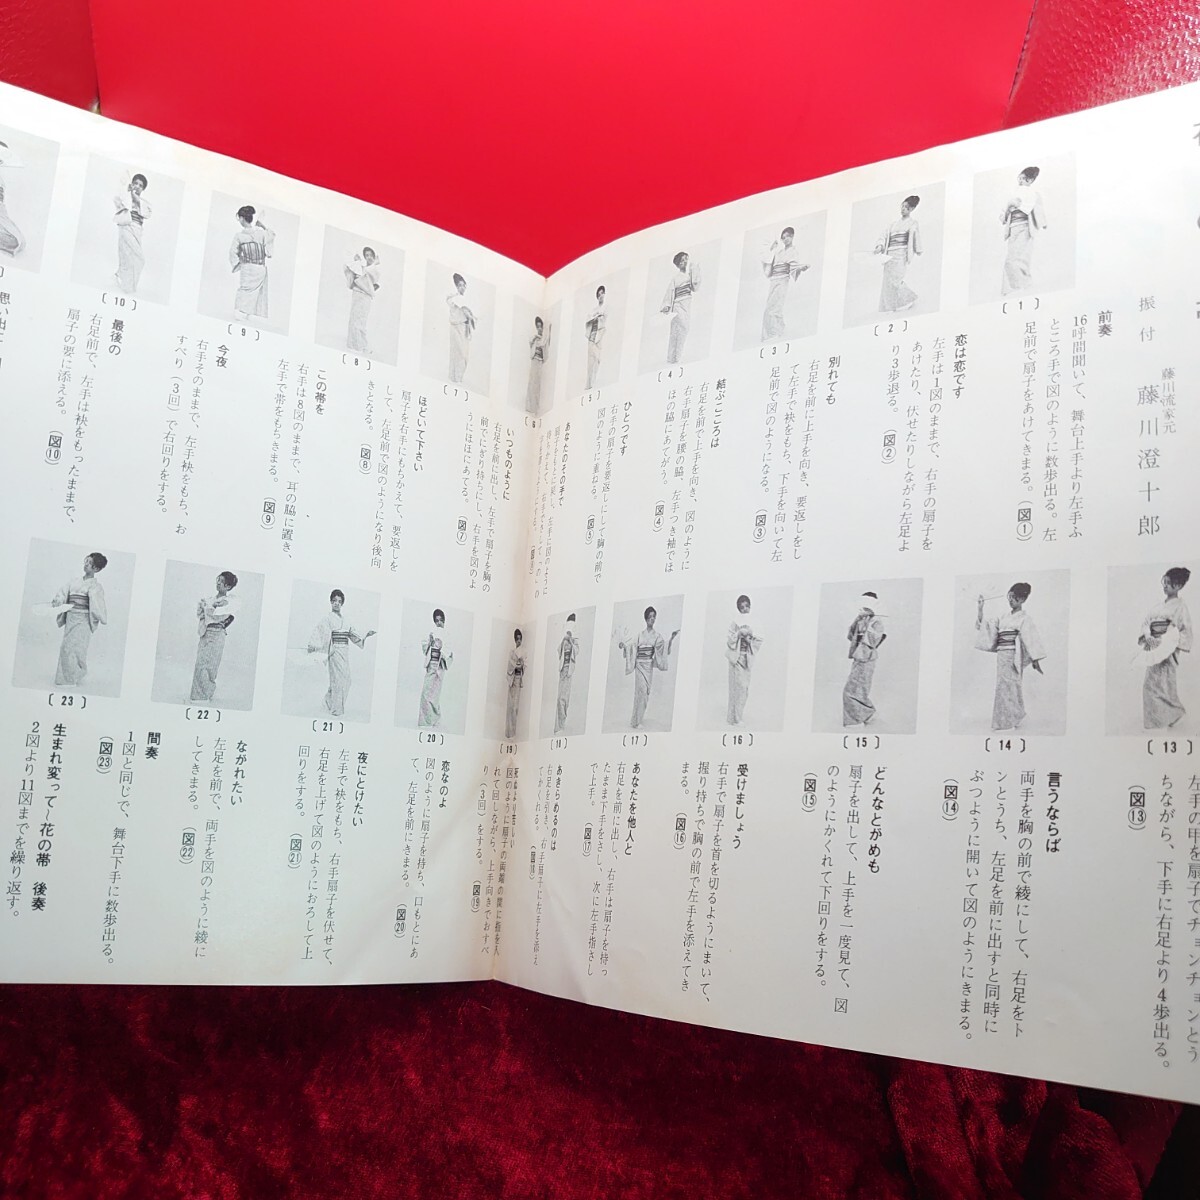 振付
藤川流家元
藤川澄十郎
〔1〕
前奏
16呼間聞いて、舞台上手より左手ふ
ところ手で図のように数歩出る。左
足前で扇子をあけてきまる。(図①)
〔2〕
恋は恋です
左手は1図のままで、右手の扇子を
あけたり、伏せたりしながら左足よ
り3歩退る。(図②)
〔3〕
別れても
右足を前に上手を向き、要返しをし
て左手で袂をもち、下手を向いて左
足前で図のようになる。(図③)
〔4〕
結ぶこころは
右足を前で上手を向き、図のように
右手扇子を腰の脇、左手つき袖でほ
ほの脇にあてがう。(図④)
〔5〕
ひとつです
右手の扇子を要返しにして胸の前で
図のように重ねる。(図⑤)
〔6〕
あなたのその手で
〔7〕
いつものように
右足を前に出し、左手で扇子を胸の
前でにぎり持ちにし、右手を図のよ
うにほほにあてる。(図⑦)
〔8〕
ほどいて下さい
扇子を右手にもちかえて、要返しを
して、左足前で図のようになり後向
きとなる。(図⑧)
〔9〕
この帯を
右手は8図のままで、耳の脇に置き、
左手で帯をもちきまる。(図⑨)
今夜
右手そのままで、左手袂をもち、お
すべり(3回)で右回りをする。
〔10〕
最後の
右足前で、左手は袂をもったままで、
扇子の要に添える。(図⑩)
〔13〕
左手の甲を扇子でチョンチョンとう
ちながら、下手に右足より4歩出る。
(図⑬)
〔14〕
言うならば
両手を胸の前で綾にして、右足をト
ンとうち、左足を前に出すと同時に
ぶつように開いて図のようにきまる。
(図⑭)
〔15〕
どんなとがめも
扇子を出して、上手を一度見て、図
のようにかくれて下回りをする。
(図⑮)
〔16〕
受けましょう
右手で扇子を首を切るようにまいて、
握り持ちで胸の前で左手を添えてき
まる。(図⑯)
〔17〕
あなたを他人と
右足を前に出し、右手は扇子を持っ
たまま下手をさし、次に左手指さし
で上手。(図⑰)
〔18〕
あきらめるのは
右足を引き、右手扇子に左手を添え
てかくれる。(図⑱)
〔19〕
図のように扇子の両端の間に指を入
れて回しながら、上手向きでおすべ
り(3回)をする。(図⑲)
〔20〕
恋なのよ
図のように扇子を持ち、口もとにあ
て、左足を前にきまる。(図⑳)
〔21〕
夜にとけたい
左手で袂をもち、右手扇子を伏せて、
右足を上げて図のようにおろして上
回りをする。(図㉑)
〔22〕
ながれたい
左足を前で、両手を図のように綾に
してきまる。(図㉒)
〔23〕
間奏
1図と同じで、舞台下手に数歩出る。
(図㉓)
生まれ変って~花の帯 後奏
2図より11図までを繰り返す。